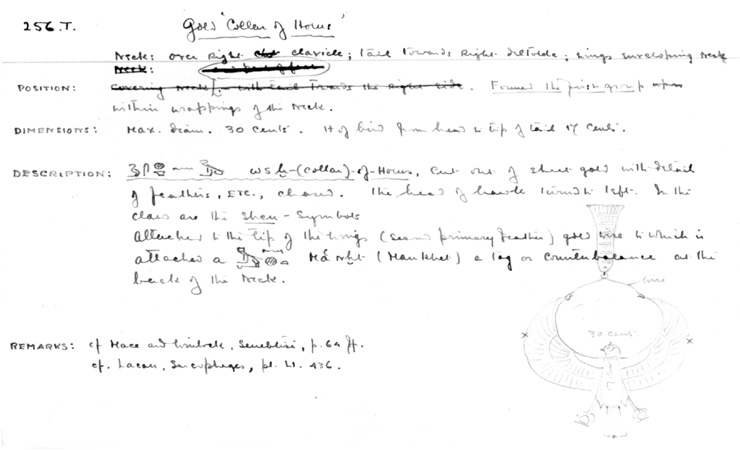 256.T.
Gold "Collar of Horus"
Neck: over right clavicle; tail towards right deltoide; wings enveloping neck
Neck:
POSITION: Covering Neck, with tail towards the right side. Formed the first group
within wrappings of the neck.
DIMENSIONS: Max. diam. 30 cents. Ht of bird from head to tip of tail 17 cents.
DESCRIPTION: wsḫ-(collar)-of-Horus, cut out of sheet gold with detail
of feathers, ETC., chased. The head of hawk turned to left. In the
claws are the Shen-symbols
Attached to the tip of the wings (second primary feather) gold wire to which is
attached a (Mankhet) a tag or counterbalance at the
back of the neck.
wire
30 cents.
REMARKS: cf Mace and Winlock, Senebtisi, p. 64 ff.
cf. Lacau, Sarcophages, pl. LI. 436.